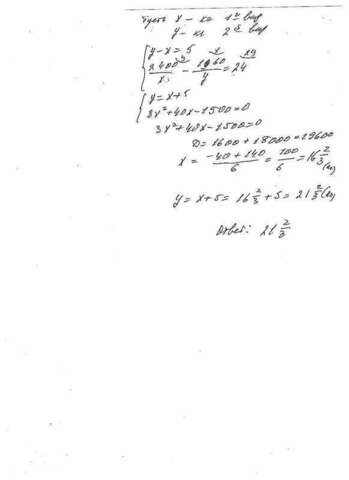 Пусть x – кг 1й вар
y – кг 2й вар
y-x=5
2400/x - 1960/y = 24
y=x+5
3x²+40x-1500=0
3x²+40x-1500=0
D=1600+18000=19600
x = (-40+140)/6 = 100/6 = 16 2/3 (кг)
y = x+5 = 16 2/3 + 5 = 21 2/3 (кг)
Ответ: 21 2/3